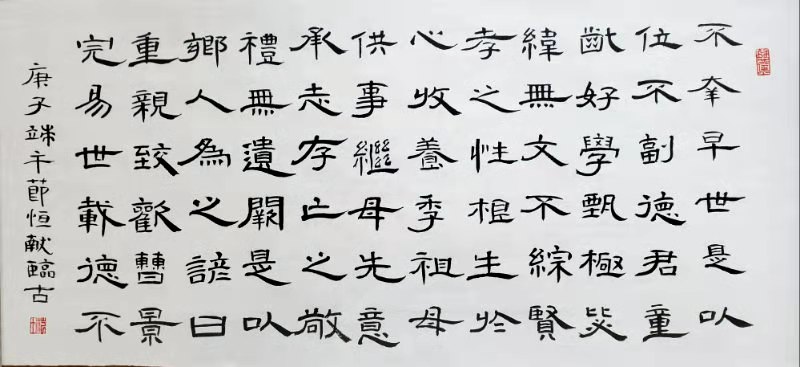 不幸早世是以
位不副德君童
齔好學甄極毖
緯無文不綜賢
孝之性根生於
心收養季祖母
供事繼母先意
承志存亡之敬
禮無遺闕是以
鄉人為之諺曰
重親致歡曹景
完易世載德不
庚子端午節恒献臨古